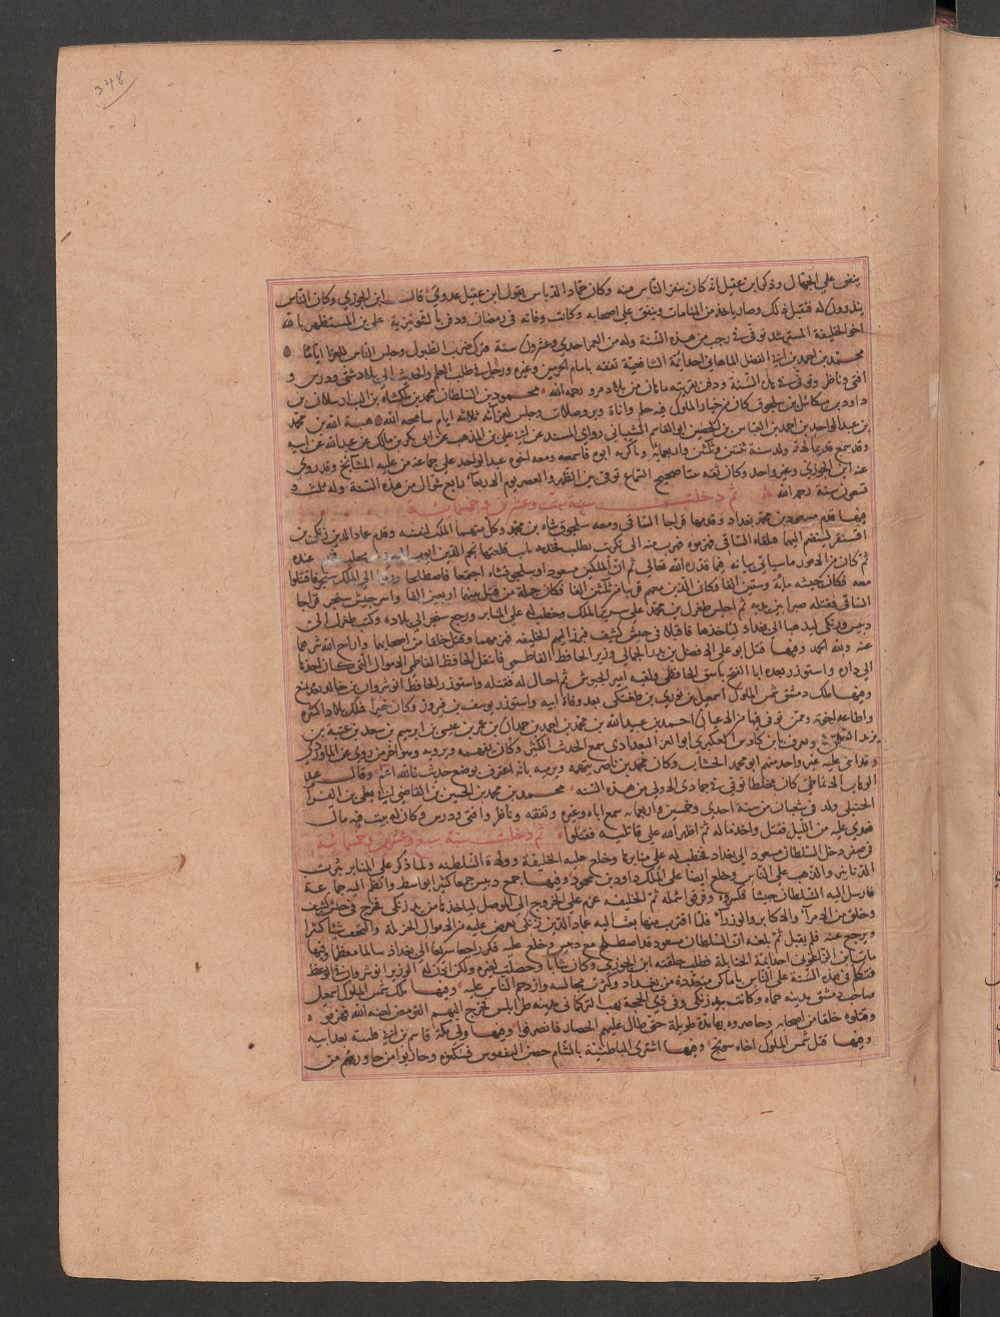 ٣٤٨
ينفق على الجهال وذكر ابن عقيل انه كان ينفر الناس منه وكان حماد الدباس يقول ابن عقيل عدوي قال ابن الجوزي وكان الناس
ينذرون له فتقبل ذلك وصار ياخذ من المنامات وينفق على اصحابه وكانت وفاته في رمضان ودفن بالشونيزية علي بن المستظهر بالله
اخو الخليفة المسترشد توفي في رجب من هذه السنة وله من العمر احدى وعشرون سنة فترك ضرب الطبول وجلس الناس للعزا اياما
محمد بن احمد بن ابي الفضل الماهاني احد ائمة الشافعية تفقه بامام الحرمين وغيره ورحل في طلب العلم والحديث الى بلاد شتى ودرس و
افتى وناظر وتوفي في هذه السنة ودفن بقرية ماهان من بلاد مرو رحمه الله محمود بن السلطان محمد بن ملكشاه بن الب ارسلان بن
داود بن ميكائيل بن سلجوق كان من خيار الملوك فيه حلم واناة وبر وصلات وجلس لعزائه ثلاثة ايام سامحه الله هبة الله بن محمد
بن عبد الواحد بن احمد بن العباس بن الحصين ابو القاسم الشيباني راوي المسند عن ابي علي بن المذهب عن ابي بكر بن مالك عن عبد الله عن ابيه
وقد سمع قديما لانه ولد سنة ثنتين وثلثين واربعمائة وباكر به ابوه فاسمعه ومعه اخوه عبد الواحد على جماعة من علية المشايخ وقد روى
عنه ابن الجوزي وغير واحد وكان ثقة ثبتا صحيح السماع توفي بين الظهر والعصر يوم الاربعا رابع شوال من هذه السنة وله ثلث و
تسعون سنة رحمه الله ثم دخلت سنة ست وعشرين وخمسمائة
فيها قدم مسعود بن محمد بغداد وقدمها قراجا الساقي ومعه سلجوق شاه بن محمد وكل منهما الملك لنفسه وقدم عماد الدين زنكي بن
اقسنقر لينضم اليهما فلقاه الساقي فهزموه فهرب منه الى تكريت فخدمه نائب قلعتها نجم الدين ايوب
ثم كان من الامور ما سياتي بيانه فيما قدره الله تعالى ثم ان الملكين مسعود وسلجوقشاه اجتمعا فاصطلحا الى الملك سنجر فاقتتلوا
معه فكان جيشه مائة وستين الفا وكان الذين معهم قريبا من ثلثين الفا وكان جملة من قتل بينهما اربعين الفا واسر جيش سنجر قراجا
الساقي فقتله صبرا بين يديه ثم اجلس طغرل بن محمد على سرير الملك وخطب له على المنابر ورجع سنجر الى بلاده وكتب طغرل الى
دبيس وزنكي ليذهبا الى بغداد لياخذاها فاقبلا في جيش كثيف فبرز اليهم الخليفة فهزمهما وقتل خلقا من اصحابهما وازاح الله شرهما
عنه ولله الحمد وفيها قتل ابو علي الافضل بن بدر الجمالي وزير الحافظ الفاطمي فانتقل الحافظ الفاطمي الاموال التي كان اخذها
الى داره واستوزر بعده ابا الفتح يانس الحافظي ولقبه امير الجيوش ثم احتال له فقتله واستوزر الحافظ انوشروان بن خالد
وفيها ملك دمشق شمس الملوك اسمعيل بن بوري بن طغتكين بعد وفاة ابيه واستوزر يوسف بن فيروز وكان خيرا فملك بلادا كثيرة
واطاعه اخوته وممن توفي فيها من الاعيان احمد بن عبيد الله بن محمد بن احمد بن حمدان بن عمر بن عيسى بن ابرهيم بن سعد بن عتبة بن
يزيد السلمي ويعرف بابن كادش العكبري ابو العز البغدادي سمع الحديث الكثير وكان يفهمه ويرويه وهو اخر من روى عن الماوردي
وقد اثنى عليه غير واحد منهم ابو محمد الخشاب وكان محمد بن ناصر يتهمه ويرميه بانه اعترف بوضع حديث فالله اعلم وقال عبد
الوهاب الانماطي كان مخلطا توفي في جمادى الاولى من هذه السنة محمد بن محمد بن الحسين بن القاضي ابي يعلى بن الفراء
الحنبلي ولد في شعبان من سنة احدى وخمسين واربعمائة سمع اباه وغيره وتفقه وناظر وافتى ودرس وكان له بيت فيه مال
فعدي عليه من الليل فقتل واخذ ماله ثم اظهر الله على قاتليه فقتلوا ثم دخلت سنة سبع وعشرين وخمسمائة
في صفر دخل السلطان مسعود الى بغداد فخطب له على منابرها وخلع عليه الخليفة وولاه السلطنة ولما ذكر على المنابر نثرت
الدنانير والذهب على الناس وخلع ايضا على الملك داود بن محمود وفيها جمع دبيس جمعا كثيرا بواسط وانظم اليه جماعة
فارسل اليه السلطان جيشا فكسروه وفرق شمله ثم الخليفة عزم على الخروج الى الموصل لياخذها من يد زنكي فخرج في جيش كثيف
وخلق من الامراء والاكابر والوزراء فلما اقترب منها بعث اليه عماد الدين زنكي يعرض عليه من الاموال الجزيلة والتحف شيئا كثيرا
ويرجع عنه فلم يقبل ثم بلغه ان السلطان مسعود قد اصطلح مع دبيس وخلع عليه فكر راجعا سريعا الى بغداد سالما معظما وفيها
مات ابن الزاغوني احد ائمة الحنابلة فطلب حلقته ابن الجوزي وكان شابا وحصلت لغيره ولكن اذن له الوزير انوشروان في الوعظ
فتكلم في هذه السنة على الناس باماكن متعددة من بغداد وكثرت مجالسه وازدحم الناس عليه وفيها ملك شمس الملوك اسمعيل
صاحب دمشق مدينة حماه وكانت بيد زنكي وفي ذي الحجة نهب التركمان مدينة طرابلس فخرج اليهم القومص لعنه الله فهزموه
وقتلوا خلقا من اصحابه وحاصروه بها مدة طويلة حتى طال عليهم الحصار فانصرفوا وفيها ولي مكة قاسم بن ابي فليتة بعد ابيه
وفيها قتل شمس الملوك اخاه سونج وفيها اشترى الباطنية بالشام حصن القدموس فسكنوه وحاربوا من جاورهم من